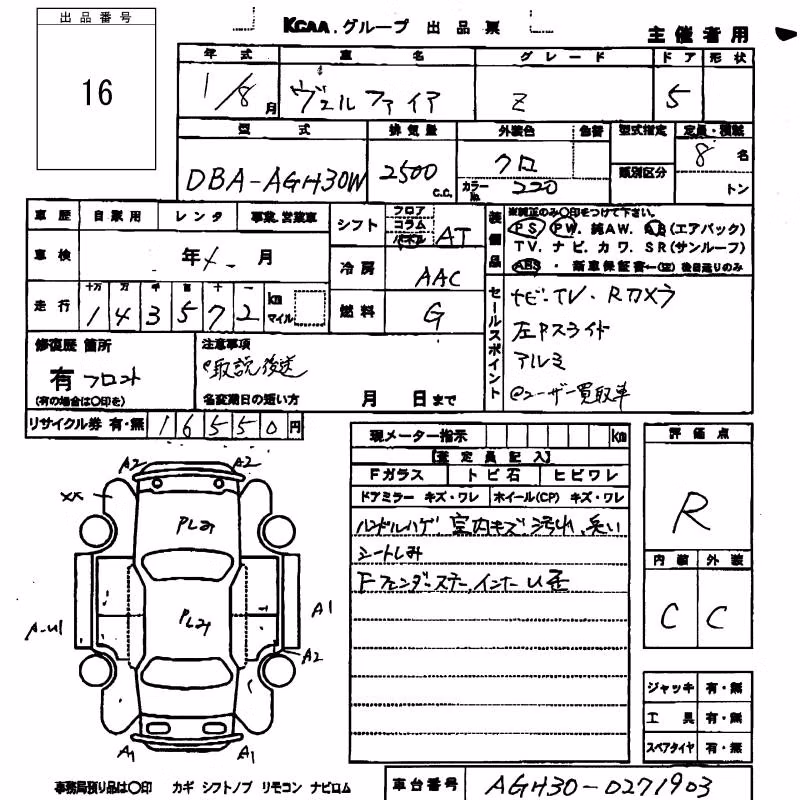 出品番号
16
KCAA.グループ 出品票
主催者用
年式 車名 グレード ドア 形状
1/8月 ヴェルファイア Z 5
型式 排気量 外装色 色替 型式指定 定員・積載
DBA-AGH30W 2500c.c. クロ 類別区分 8名
カラーNo. 220 トン
車歴 自家用 レンタ 事業、営業車
車検 年 月
走行 十万 万 千 百 十 一 km マイル
1 4 3 5 7 2
シフト フロア コラム AT
冷房 AAC
燃料 G
装備品
※純正のみ〇印をつけて下さい。
PS PW. 純AW. AB(エアバック)
TV. ナビ. カワ. SR(サンルーフ)
ABS ・新車保証書←(記)後日送りのみ
セールスポイント
ナビ・TV・Rカメラ
左Pスライド
アルミ
@ユーザー買取車
修復歴 箇所
有 フロント
(有の場合は〇印を)
注意事項
取説後送
名変期日の短い方 月 日まで
リサイクル券 有・無 16550円
現メーター指示 km
【査定員記入】
Fガラス トビ石 ヒビワレ
ドアミラー キズ・ワレ ホイール(CP) キズ・ワレ
ハンドルハゲ, 室内キズ, 汚れ, 臭い
シートしみ
Fフェンダーステー, インナー
評価点
R
内装 外装
C C
ジャッキ 有・無
工具 有・無
スペアタイヤ 有・無
A2 A2
XX
A-U1
A1
A2
A1 A1
事務局預り品は〇印 カギ シフトノブ リモコン ナビロム
車台番号 AGH30-0271903